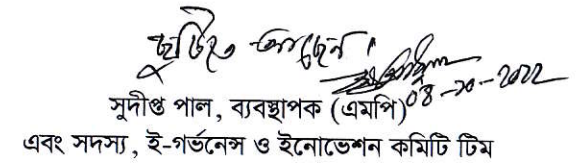 ছুটিতে আছেন।
০৪-১০-২০২২
সুদীপ্ত পাল, ব্যবস্থাপক (এমপি)
এবং সদস্য, ই-গর্ভনেন্স ও ইনোভেশন কমিটি টিম